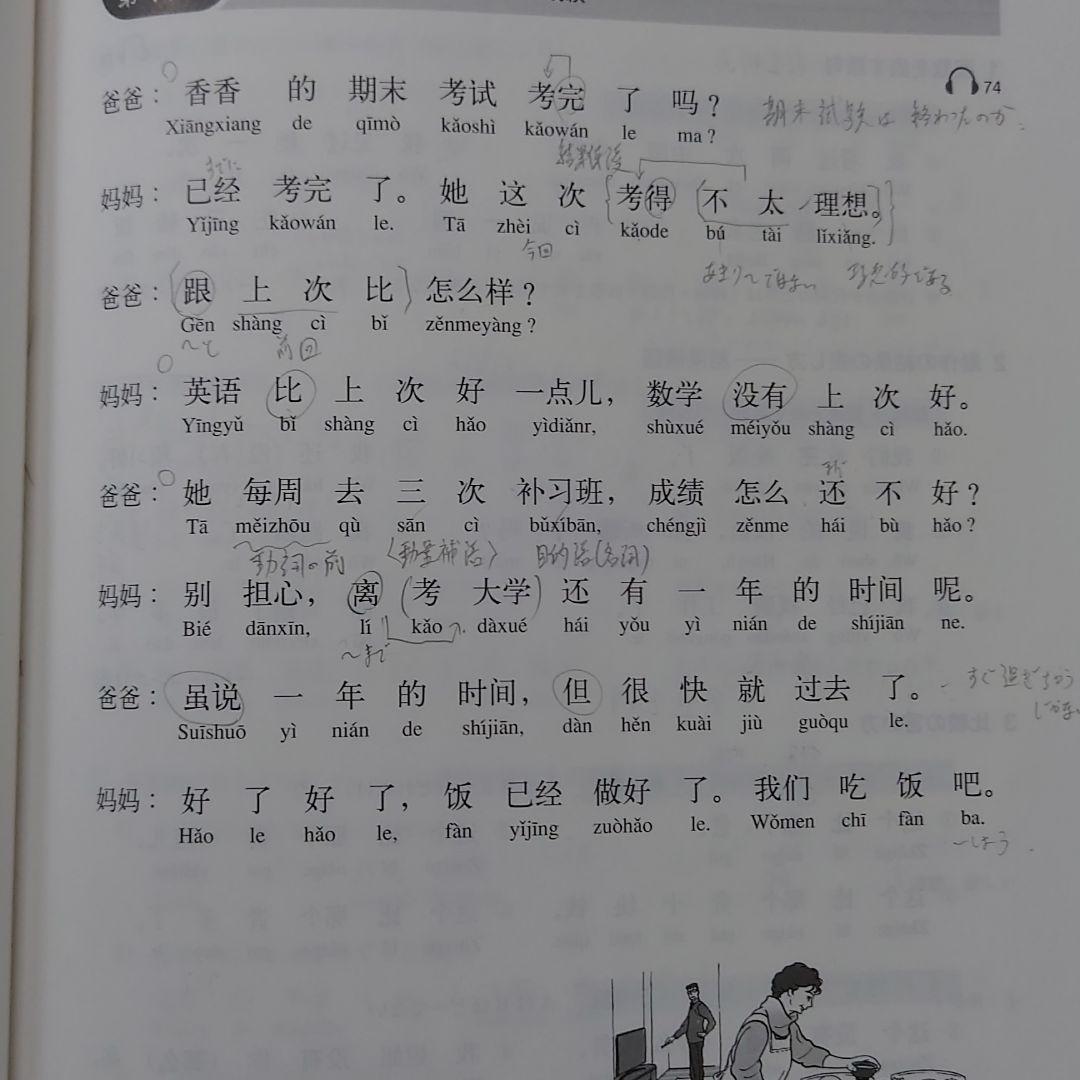 爸爸：香香 的 期末 考试 考完 了 吗？
74
Xiāngxiang de qīmò kǎoshì kǎowán le ma?
期末試験は 終わったのか
妈妈：已经 考完 了。 她 这 次 考得 不 太 理想。
Yǐjīng kǎowán le. Tā zhèi cì kǎode bú tài líxiǎng.
今回
爸爸：跟 上 次 比 怎么样？
Gēn shàng cì bǐ zěnmeyàng?
〜と 前回
妈妈：英语 比 上 次 好 一点儿， 数学 没有 上 次 好。
Yīngyǔ bǐ shàng cì hǎo yìdiǎnr, shùxué méiyǒu shàng cì hǎo.
爸爸：她 每周 去 三 次 补习班， 成绩 怎么 还 不 好？
Tā měizhōu qù sān cì bǔxíbān, chéngjì zěnme hái bù hǎo?
動詞の前 〈動量補語〉 目的語(名詞)
妈妈：别 担心， 离 (考 大学) 还 有 一 年 的 时间 呢。
Bié dānxīn, lí kǎo dàxué hái yǒu yì nián de shíjiān ne.
〜まで
爸爸：虽说 一 年 的 时间， 但 很 快 就 过去 了。
Suīshuō yì nián de shíjiān, dàn hěn kuài jiù guòqu le.
妈妈：好 了 好 了， 饭 已经 做好 了。 我们 吃 饭 吧。
Hǎo le hǎo le, fàn yǐjīng zuòhǎo le. Wǒmen chī fàn ba.
〜しょう